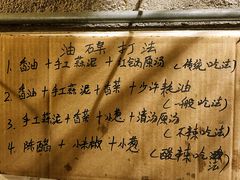 油碟打法
1. 香油+手工蒜泥+红锅原汤(传统吃法)
2. 香油+手工蒜泥+香菜+少许耗油(一般吃法)
3. 手工蒜泥+香菜+小葱+清汤原汤(不辣吃法)
4. 陈醋+小米椒+小葱(酸辣吃法)